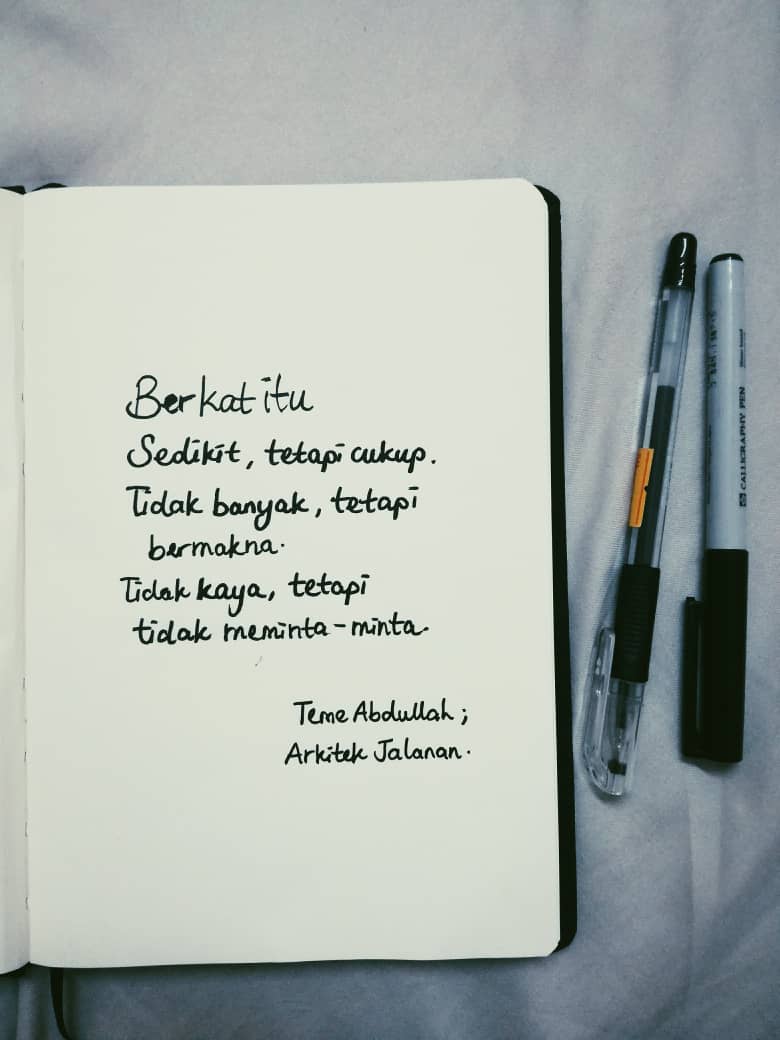 Berkat itu
Sedikit, tetapi cukup.
Tidak banyak, tetapi
bermakna.
Tidak kaya, tetapi
tidak meminta-minta.
Teme Abdullah;
Arkitek Jalanan.
CALLIGRAPHY PEN